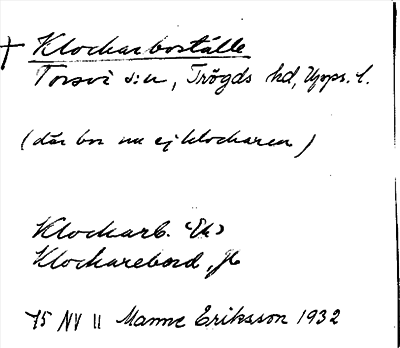 † Klockarboställe
Torsvi s:n, Trögds hd, Upps. l.
(där bor nu ej klockaren)
Klockarb. Ek
Klockarebord, Jb
75 NV 11 Manne Eriksson 1932